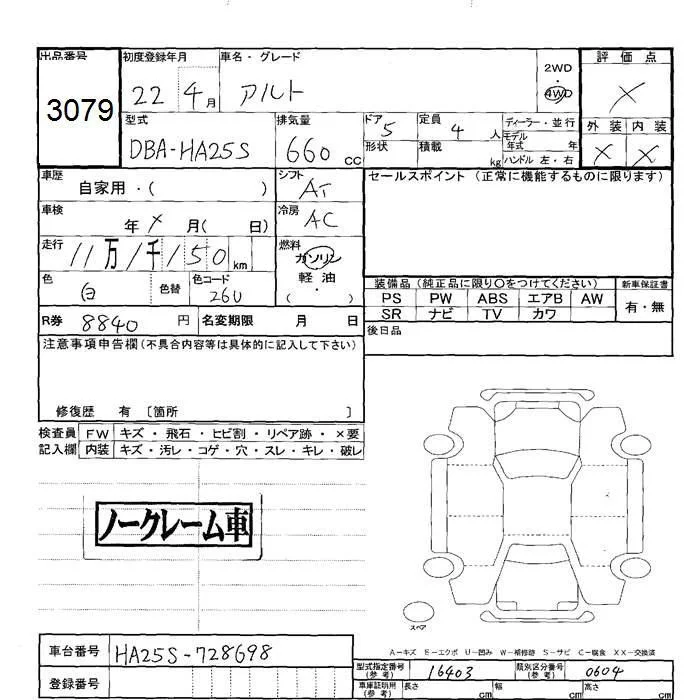 出品番号 初度登録年月 車名・グレード 評価点
3079 22 4月 アルト 2WD 4WD ×
型式 排気量 ドア 定員 ディーラー・並行 外装 内装
DBA-HA25S 660cc 5 4人 モデル年式 年
形状 積載 kg ハンドル 左・右 × ×
車歴 自家用・( ) シフト AT セールスポイント (正常に機能するものに限ります)
車検 年 × 月( 日) 冷房 AC
走行 11万1千150km 燃料 ガソリン
軽油
( )
色 白 色替 色コード 26U
装備品 (純正品に限り○をつけてください) 新車保証書
PS PW ABS エアB AW 有・無
SR ナビ TV カワ
R券 8840円 名変期限 月 日 後日品
注意事項申告欄(不具合内容等は具体的に記入して下さい)
修復歴 有 〔箇所 〕
検査員 FW キズ・飛石・ヒビ割・リペア跡・×要
記入欄 内装 キズ・汚レ・コゲ・穴・スレ・キレ・破レ
ノークレーム車
スペア
A-キズ E-エクボ U-凹み W-補修跡 S-サビ C-腐食 XX-交換済
車台番号 HA25S-728698
登録番号
型式指定番号(参考) 16403 類別区分番号(参考) 0604
車庫証明用(参考) 長さ cm 幅 cm 高さ cm